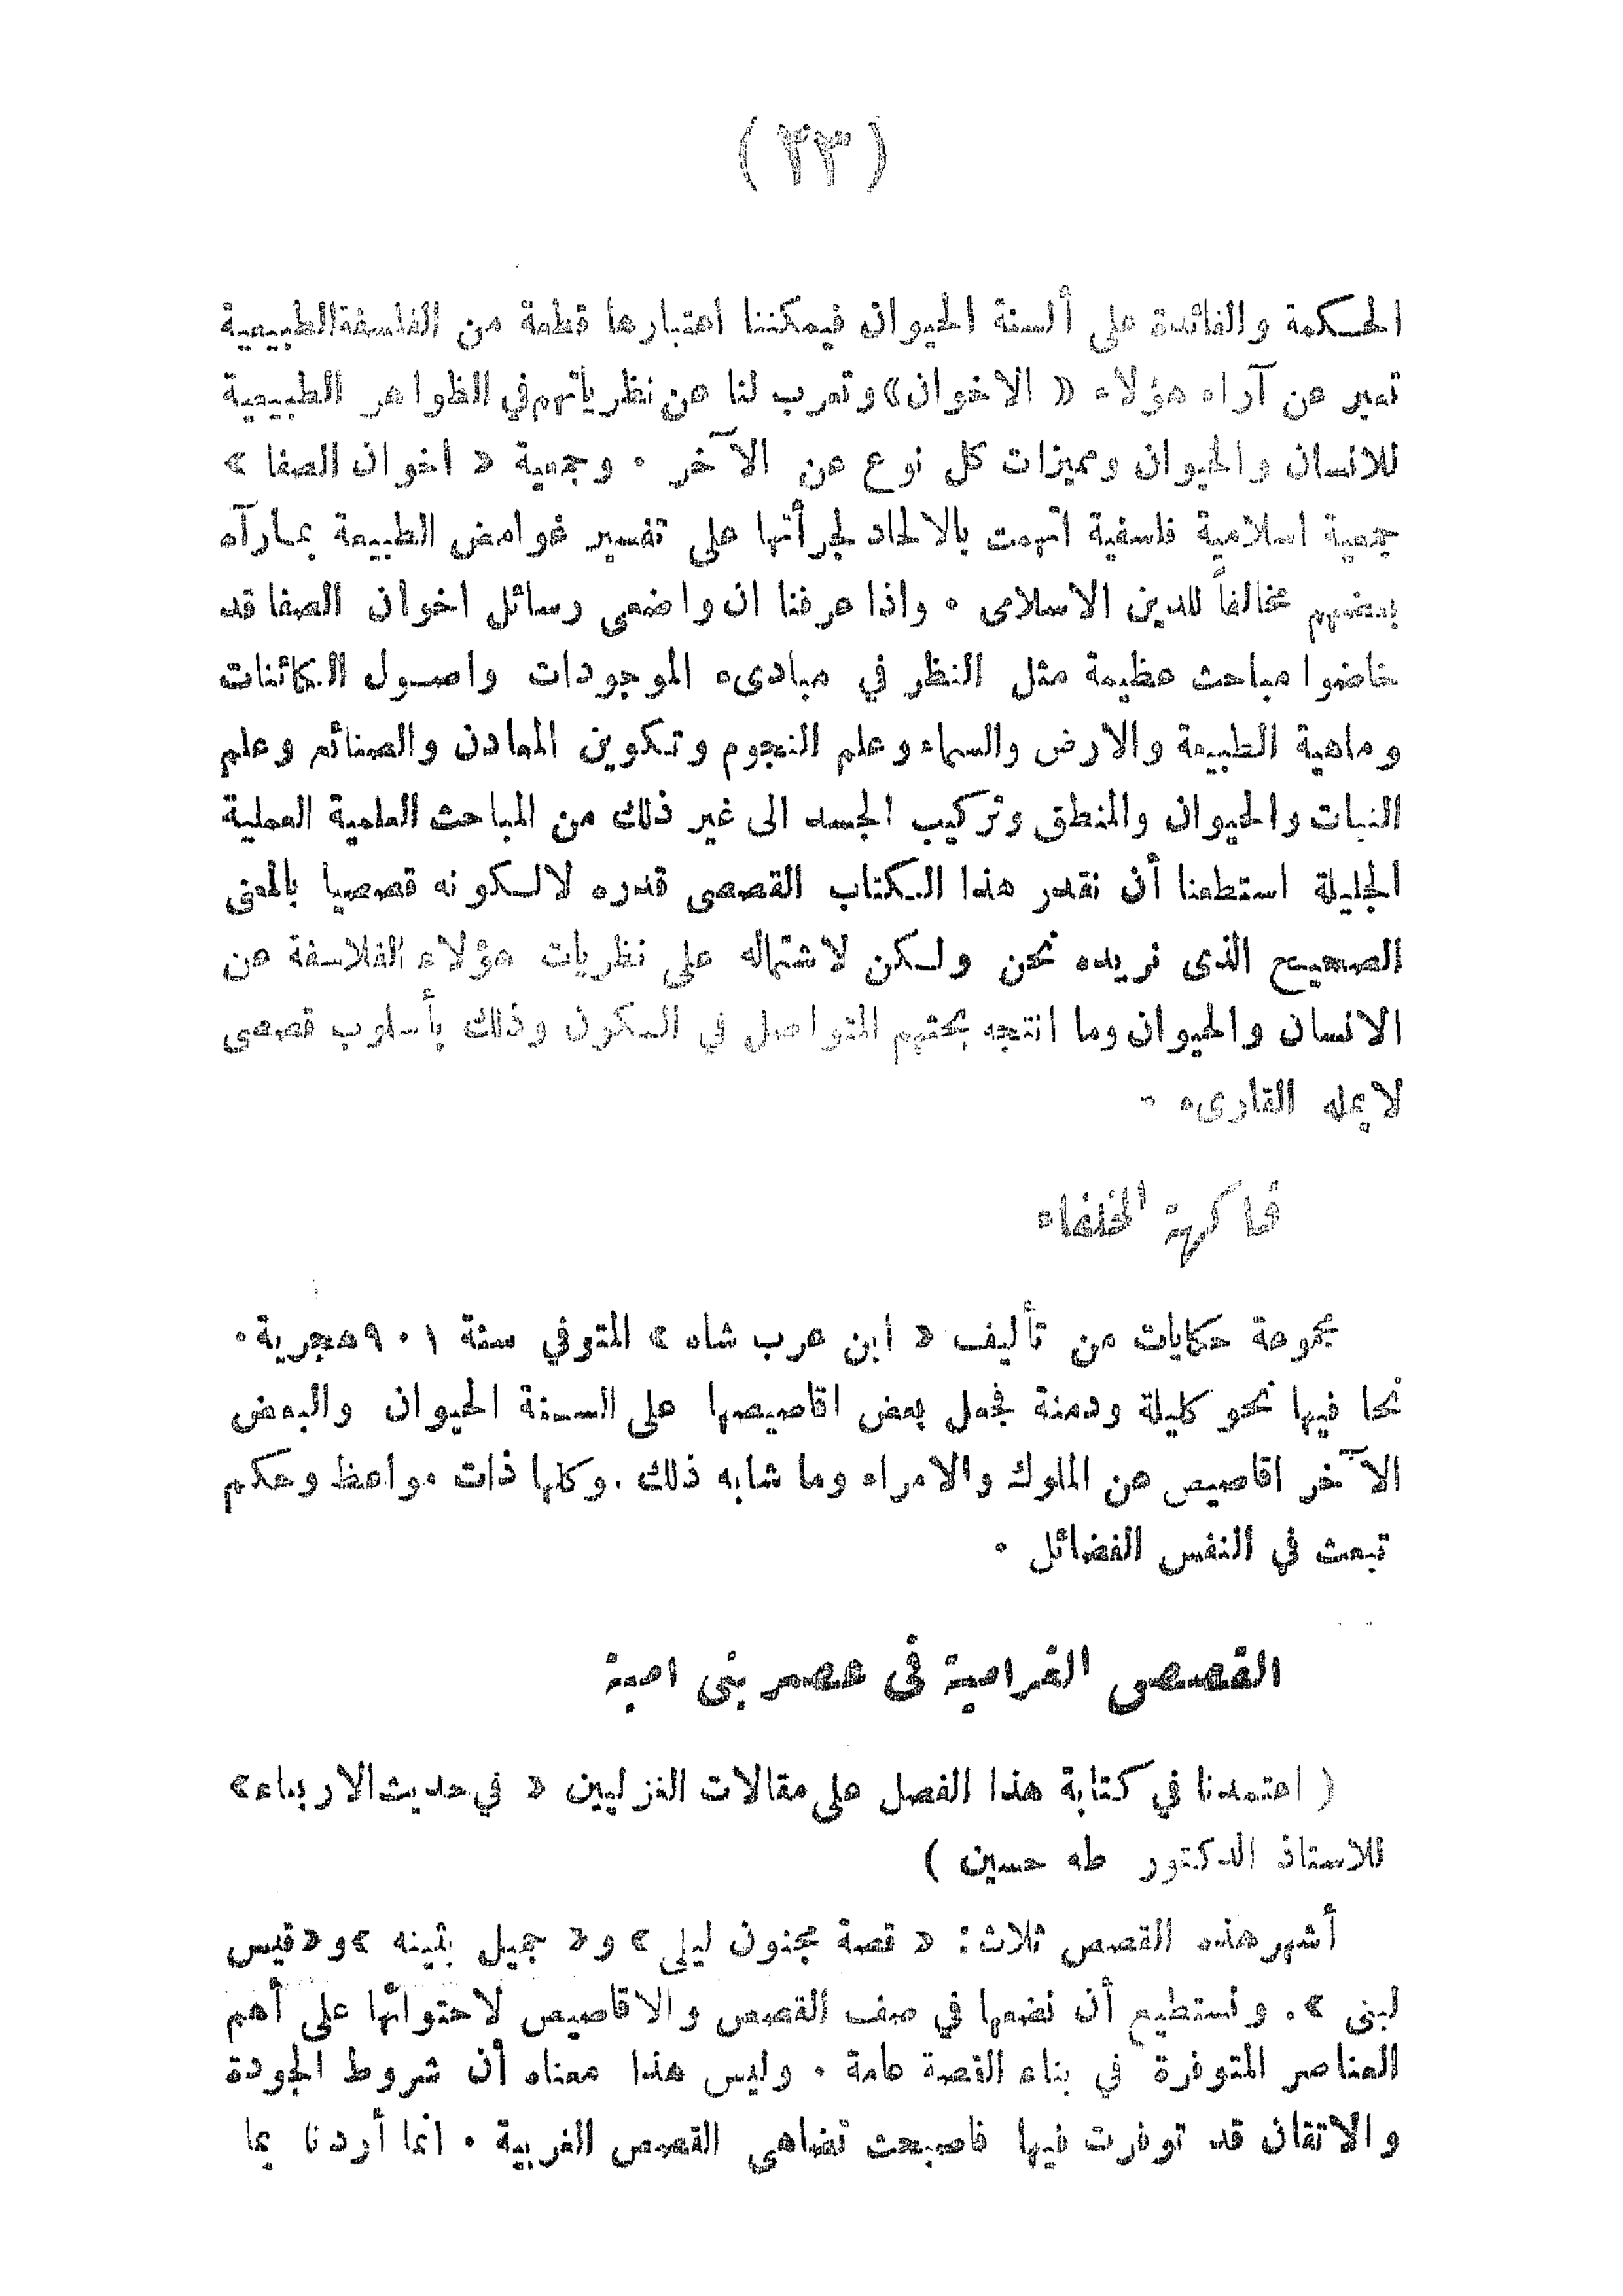 ( ٤٣ )
الحكمة والفائدة على ألسنة الحيوان فيمكننا اعتبارها قطعة من الفلسفة الطبيعية
تعبر عن آراء هؤلاء « الاخوان» وتعرب لنا عن نظرياتهم في الظواهر الطبيعية
للانسان والحيوان ومميزات كل نوع عن الآخر . وجمعية « اخوان الصفا »
جمعية اسلامية فلسفية اتهمت بالالحاد لجرأتها على تفسير غوامض الطبيعة بما رآه
بعضهم مخالفاً للدين الاسلامى . واذا عرفنا ان واضعى رسائل اخوان الصفا قد
خاضوا مباحث عظيمة مثل النظر في مبادىء الموجودات واصول الكائنات
وماهية الطبيعة والارض والسماء وعلم النجوم وتكوين المعادن والصنائع وعلم
النبات والحيوان والمنطق وتركيب الجسد الى غير ذلك من المباحث العلمية العملية
الجليلة استطعنا أن نقدر هذا الكتاب القصصى قدره لا لكونه قصصيا بالمعنى
الصحيح الذى نريده نحن ولكن لاشتماله على نظريات هؤلاء الفلاسفة عن
الانسان والحيوان وما انتجه بحثهم المتواصل في الكون وذلك بأسلوب قصصى
لا يمله القارىء .
فاكهة الخلفاء
مجموعة حكايات من تأليف « ابن عرب شاه » المتوفي سنة ٩٠١ هجرية .
نحا فيها نحو كليلة ودمنة فجعل بعض اقاصيصها على السنة الحيوان والبعض
الآخر اقاصيص عن الملوك والامراء وما شابه ذلك . وكلها ذات مواعظ وحكم
تبعث في النفس الفضائل .
القصص الغرامية فى عصر بنى امية
( اعتمدنا في كتابة هذا الفصل على مقالات الغزليين « في حديث الاربعاء »
للاستاذ الدكتور طه حسين )
أشهر هذه القصص ثلاث : « قصة مجنون ليلى » و « جميل بثينه » و « قيس
لبنى » . ونستطيع أن نضعها في صف القصص والاقاصيص لاحتوائها على أهم
العناصر المتوفرة في بناء القصة عامة . وليس هذا معناه أن شروط الجودة
والاتقان قد توفرت فيها فاصبحت تضاهى القصص الغربية . انما أردنا بما